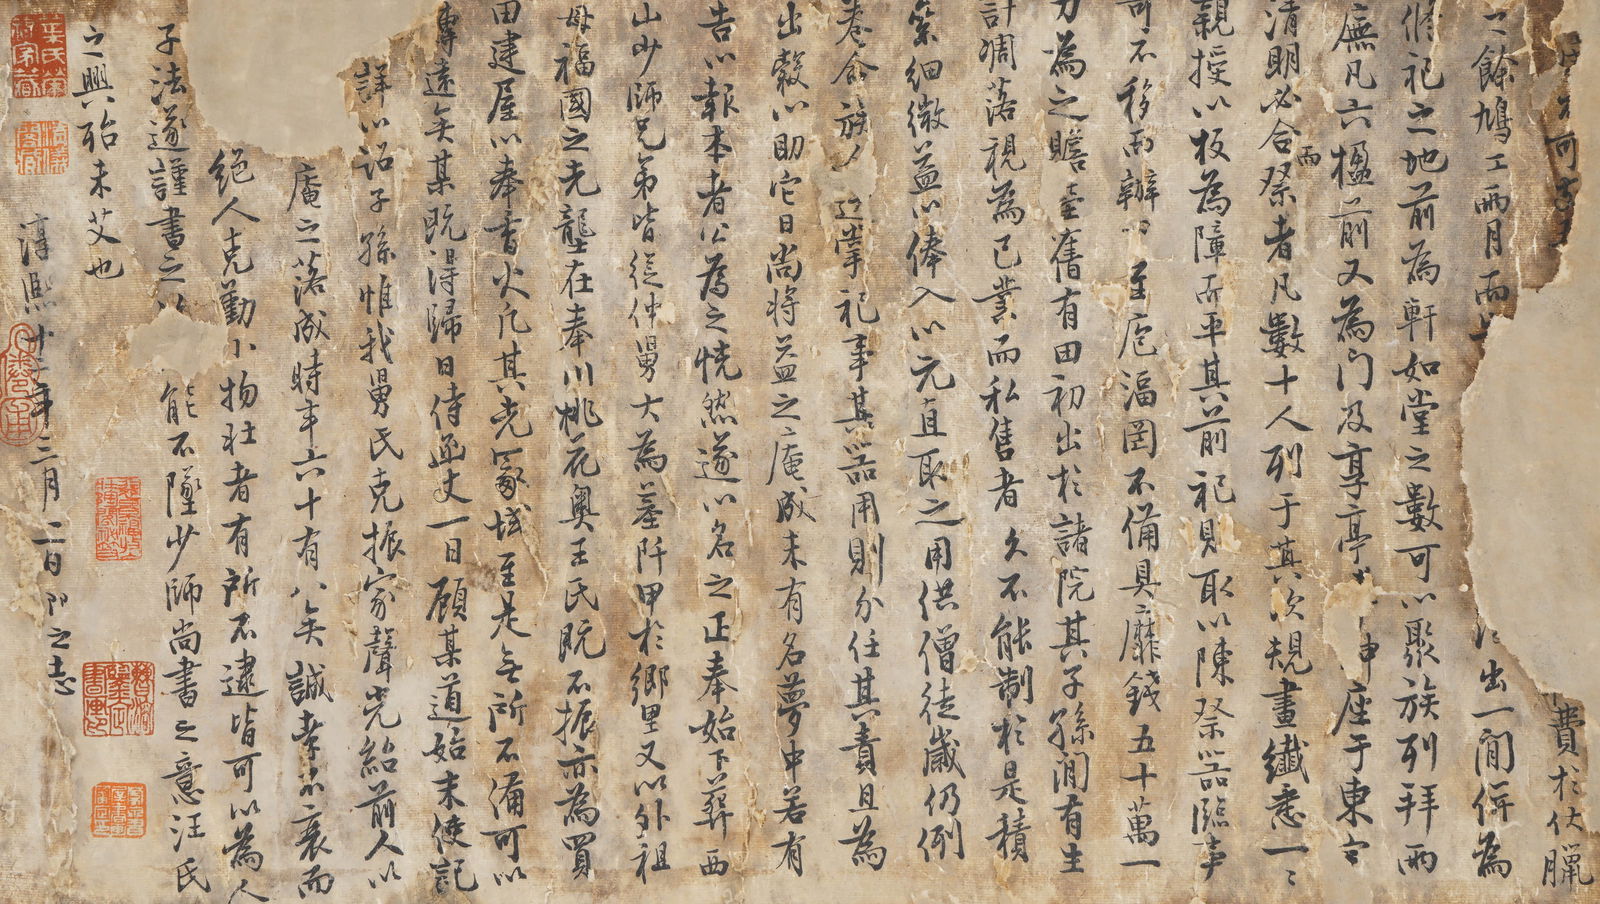 可
費於伏臘
餘鳩工兩月而
出一閒併為
修祀之地前為軒如堂之數可以聚族列拜兩
廡凡六楹前又為門及享亭
神座于東宮
清明必合祭者凡數十人列于其次規畫纖悉一〻
而
親授以板為障而平其前祀具取以陳祭器臨事
可不移而辦
至庖湢罔不備具靡錢五十萬一
力為之贍臺舊有田初出於諸院其子孫閒有生
計凋落視為已業而私售者久不能制於是積
絫細微益以俸入以元直取之用供僧徒歲仍例
卷合族人
掌祀事其器用則分任其責且為
出穀以助它日尚將益之庵成未有名夢中若有
告以報本者公為之恍然遂以名之正奉始下葬西
山少師兄弟皆從仲舅大為墓阡甲於鄉里又以外祖
母福國之先壟在奉川桃花奧王氏既不振亦為買
田建屋以奉香火凡其先冢域至是無所不備可以
專遠矣某既得歸日侍函丈一日顧某道始末使記
詳以詔子孫惟我舅氏克振家聲光紹前人以
庵之落成時年六十有八矣誠孝不衰而
絕人克勤小物壯者有所不逮皆可以為人
子法遂謹書之以
能不墜少師尚書之意汪氏
之興殆未艾也
淳熙十二年三月二日
之志